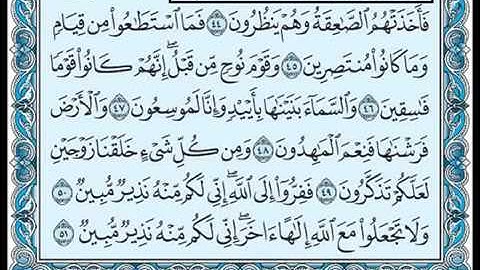 فَأَخَذَتْهُمُ ٱلصَّٰعِقَةُ وَهُمْ يَنظُرُونَ ٤٤ فَمَا ٱسْتَطَٰعُوا۟ مِن قِيَامٍ
وَمَا كَانُوا۟ مُنتَصِرِينَ ٤٥ وَقَوْمَ نُوحٍ مِّن قَبْلُ ۖ إِنَّهُمْ كَانُوا۟ قَوْمًا
فَٰسِقِينَ ٤٦ وَٱلسَّمَآءَ بَنَيْنَٰهَا بِأَيْي۟دٍ وَإِنَّا لَمُوسِعُونَ ٤٧ وَٱلْأَرْضَ
فَرَشْنَٰهَا فَنِعْمَ ٱلْمَٰهِدُونَ ٤٨ وَمِن كُلِّ شَىْءٍ خَلَقْنَا زَوْجَيْنِ
لَعَلَّكُمْ تَذَكَّرُونَ ٤٩ فَفِرُّوٓا۟ إِلَى ٱللَّهِ ۖ إِنِّى لَكُم مِّنْهُ نَذِيرٌ مُّبِينٌ ٥٠
وَلَا تَجْعَلُوا۟ مَعَ ٱللَّهِ إِلَٰهًا ءَاخَرَ ۖ إِنِّى لَكُم مِّنْهُ نَذِيرٌ مُّبِينٌ ٥١